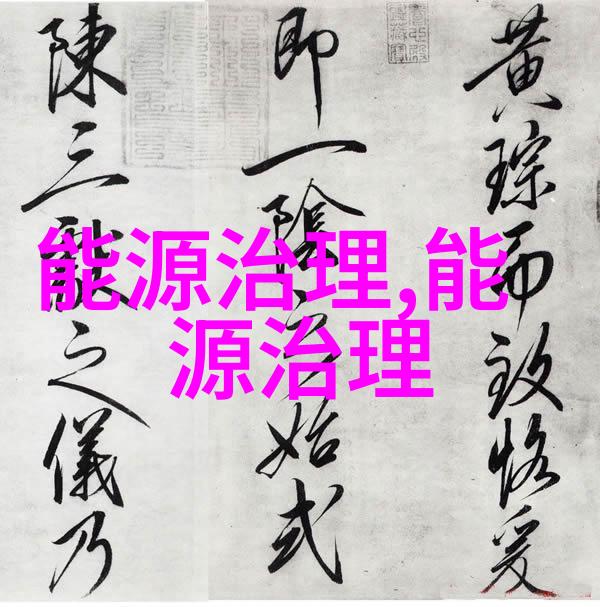 黄琮而致恪爰
即一陰之始式
陳三獻之儀乃
能源治理,能
源治理